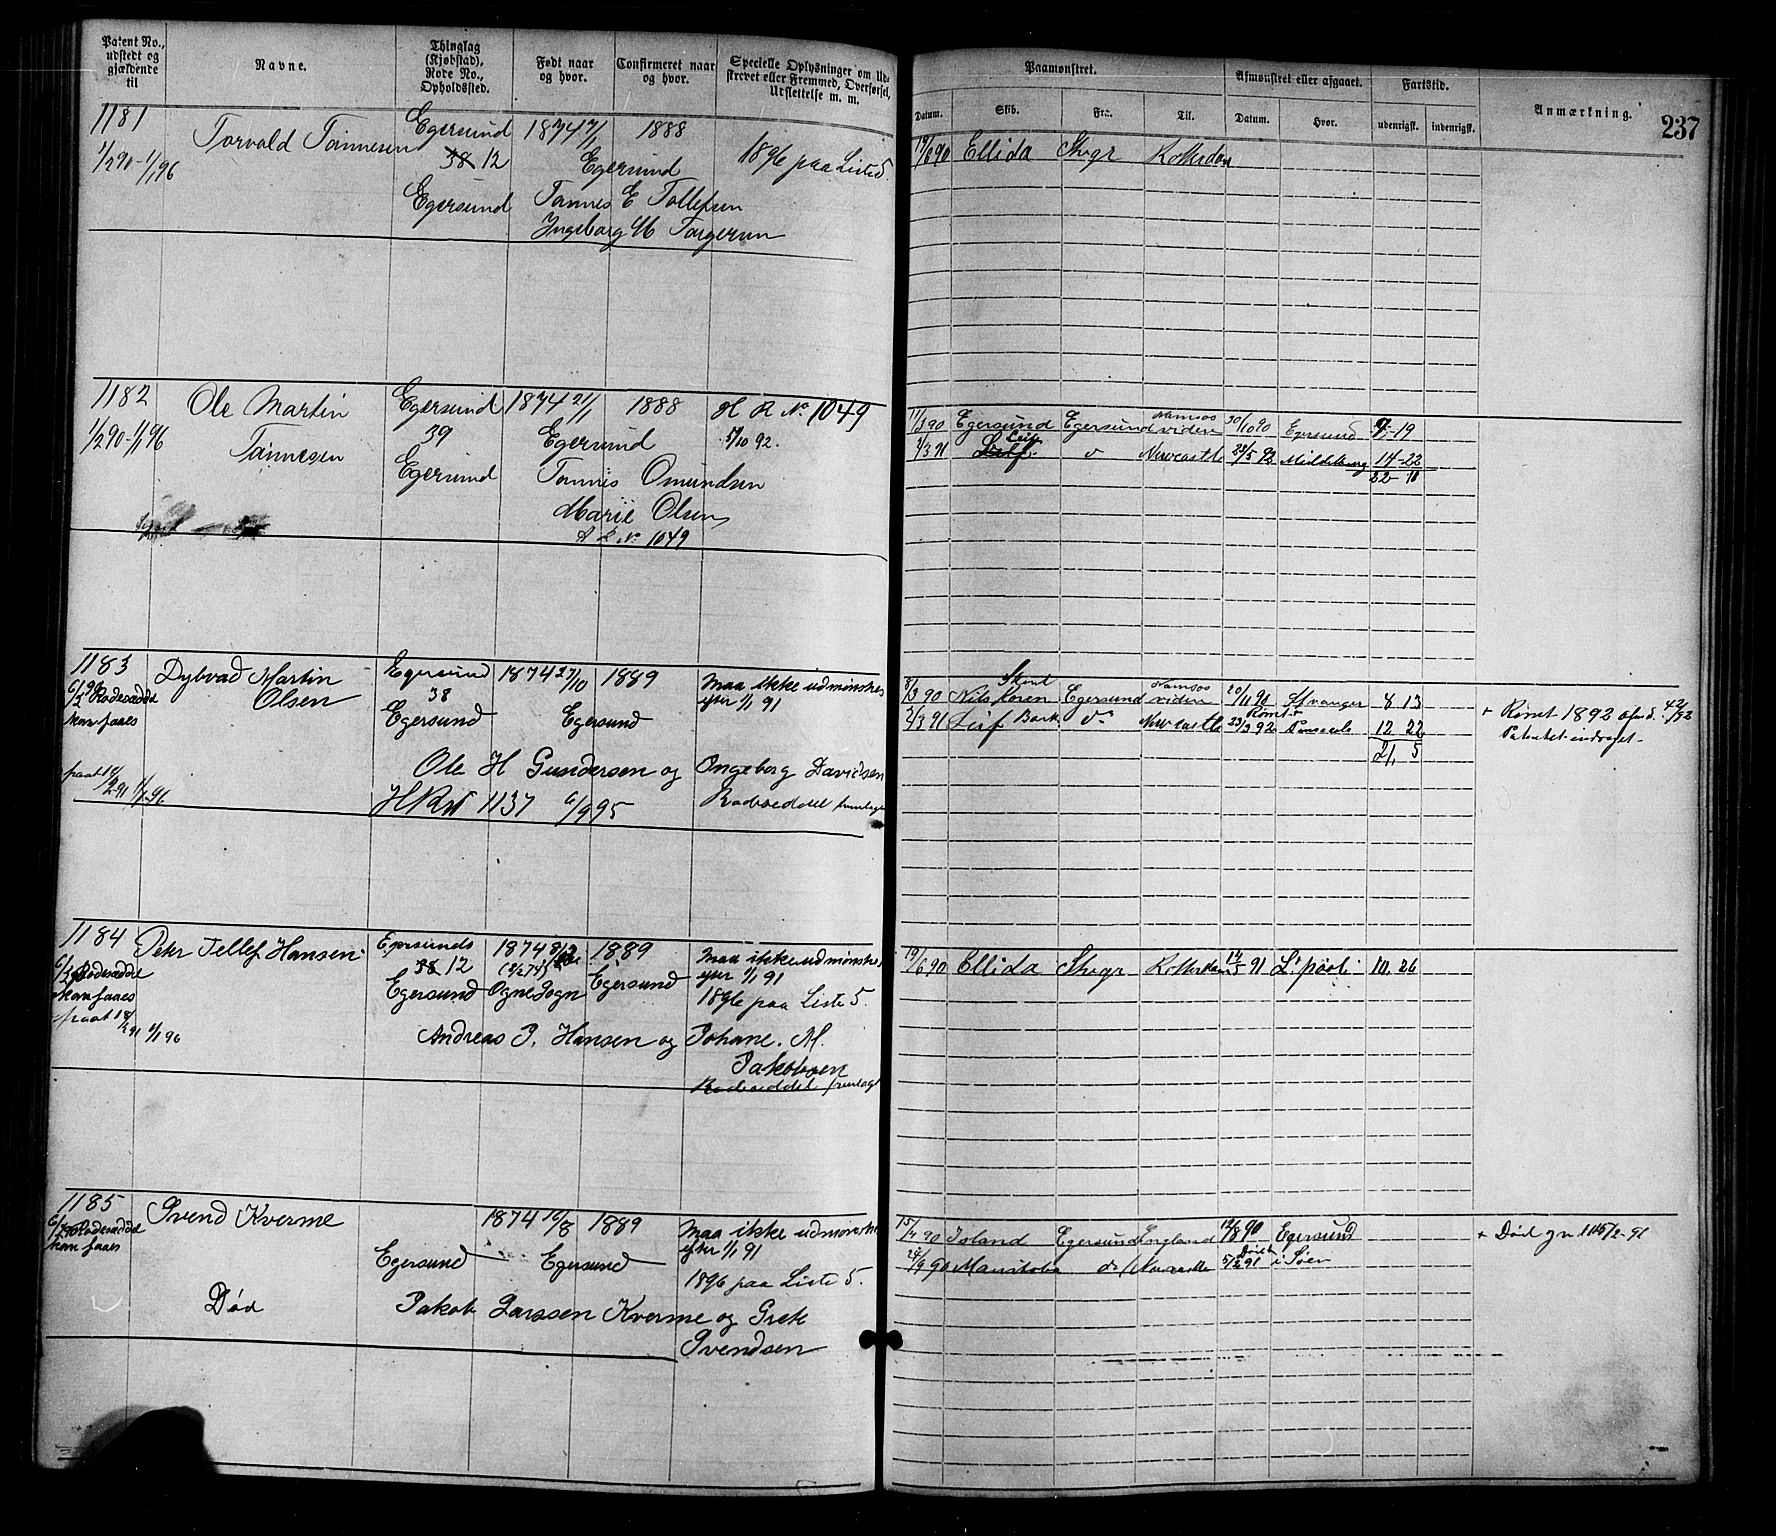 Patent No., udstedt og gjældende til
Navne.
Thinglag (Kjøbstad), Rode No., Opholdssted.
Født naar og hvor.
Confirmeret naar og hvor.
Specielle Oplysninger om Udskrevet eller Fremmed, Overførsel, Udslettelse m. m.
Paamønstret.
Afmønstret eller afgaaet.
Fartstid.
Anmærkning.
237
Datum.
Skib.
Fra.
Til.
Datum.
Hvor.
udenrigsk.
indenrigsk.
1181
Torvald Tønnesen
Egersund
1874 7/1
1888
1/2 90 - 1/1 96
38 12
Egersund
1896 paa Liste 5.
Egersund
Tønnes E Tollefsen
Ingeborg M Torgersen
19/6 90 Ellida Skgr Rotterdam
1182
Ole Martin
Egersund
1874 21/1
1888
H R No 1049
1/2 90 - 1/1 96
Tønnesen
39
Egersund
5/10 92.
Egersund
Tønnes Omundsen
Marie Olsen
A R No 1049
11/3 90 Egersund Egersund Namsos viden 30/10 90 Egersund 7-19
2/3 91 Leif Newcastle 23/5 92 Middelburg 14-22
22-10
1183
Dybvad Martin
Olsen
Egersund
1874 27/10
1889
Maa ikke udmønstres
efter 1/1 91
6/2 90 Rodeseddel
kan faaes
38
Egersund
Egersund
Ole H Gundersen og Ingeborg Davidsen
H R No 1137 6/9 95
Rodeseddel fremlagt
8/3 90 Nils Koren Egersund Namsos viden 20/11 90 Stvanger 8 13
2/3 91 Leif Bark Newcastle 23/3 92 Rømt 12 22
21, 5
+ Rømt 1892
Patentet inddraget
1184
Peter Tellef Hansen
Egersunds
1874
1889
Maa ikke udmønstres
efter 1/1 91
Rodeseddel
kan faaes
38 12
Egersund
Ogne Sogn
Egersund
1896 paa Liste 5.
1/1 96
Andreas P. Hansen og Johane. M.
Jakobsen
Rodeseddel fremlagt
19/6 90 Ellida Skgr Rotterdam 14/5 91 L'pool 10, 26
1185
Svend Kverme
1874 16/8
1889
Maa ikke udmønstres
efter 1/1 91
Rodeseddel
kan faaes
Egersund
Egersund
1896 paa Liste 5.
Død
Jakob Larssen Kverme og Grete
Svendsen
15/4 90 Island Egersund England 12/8 90 Egersund
24/9 90 Manitoba do Newcastle 5/2 91 Død i Søen
+ Død